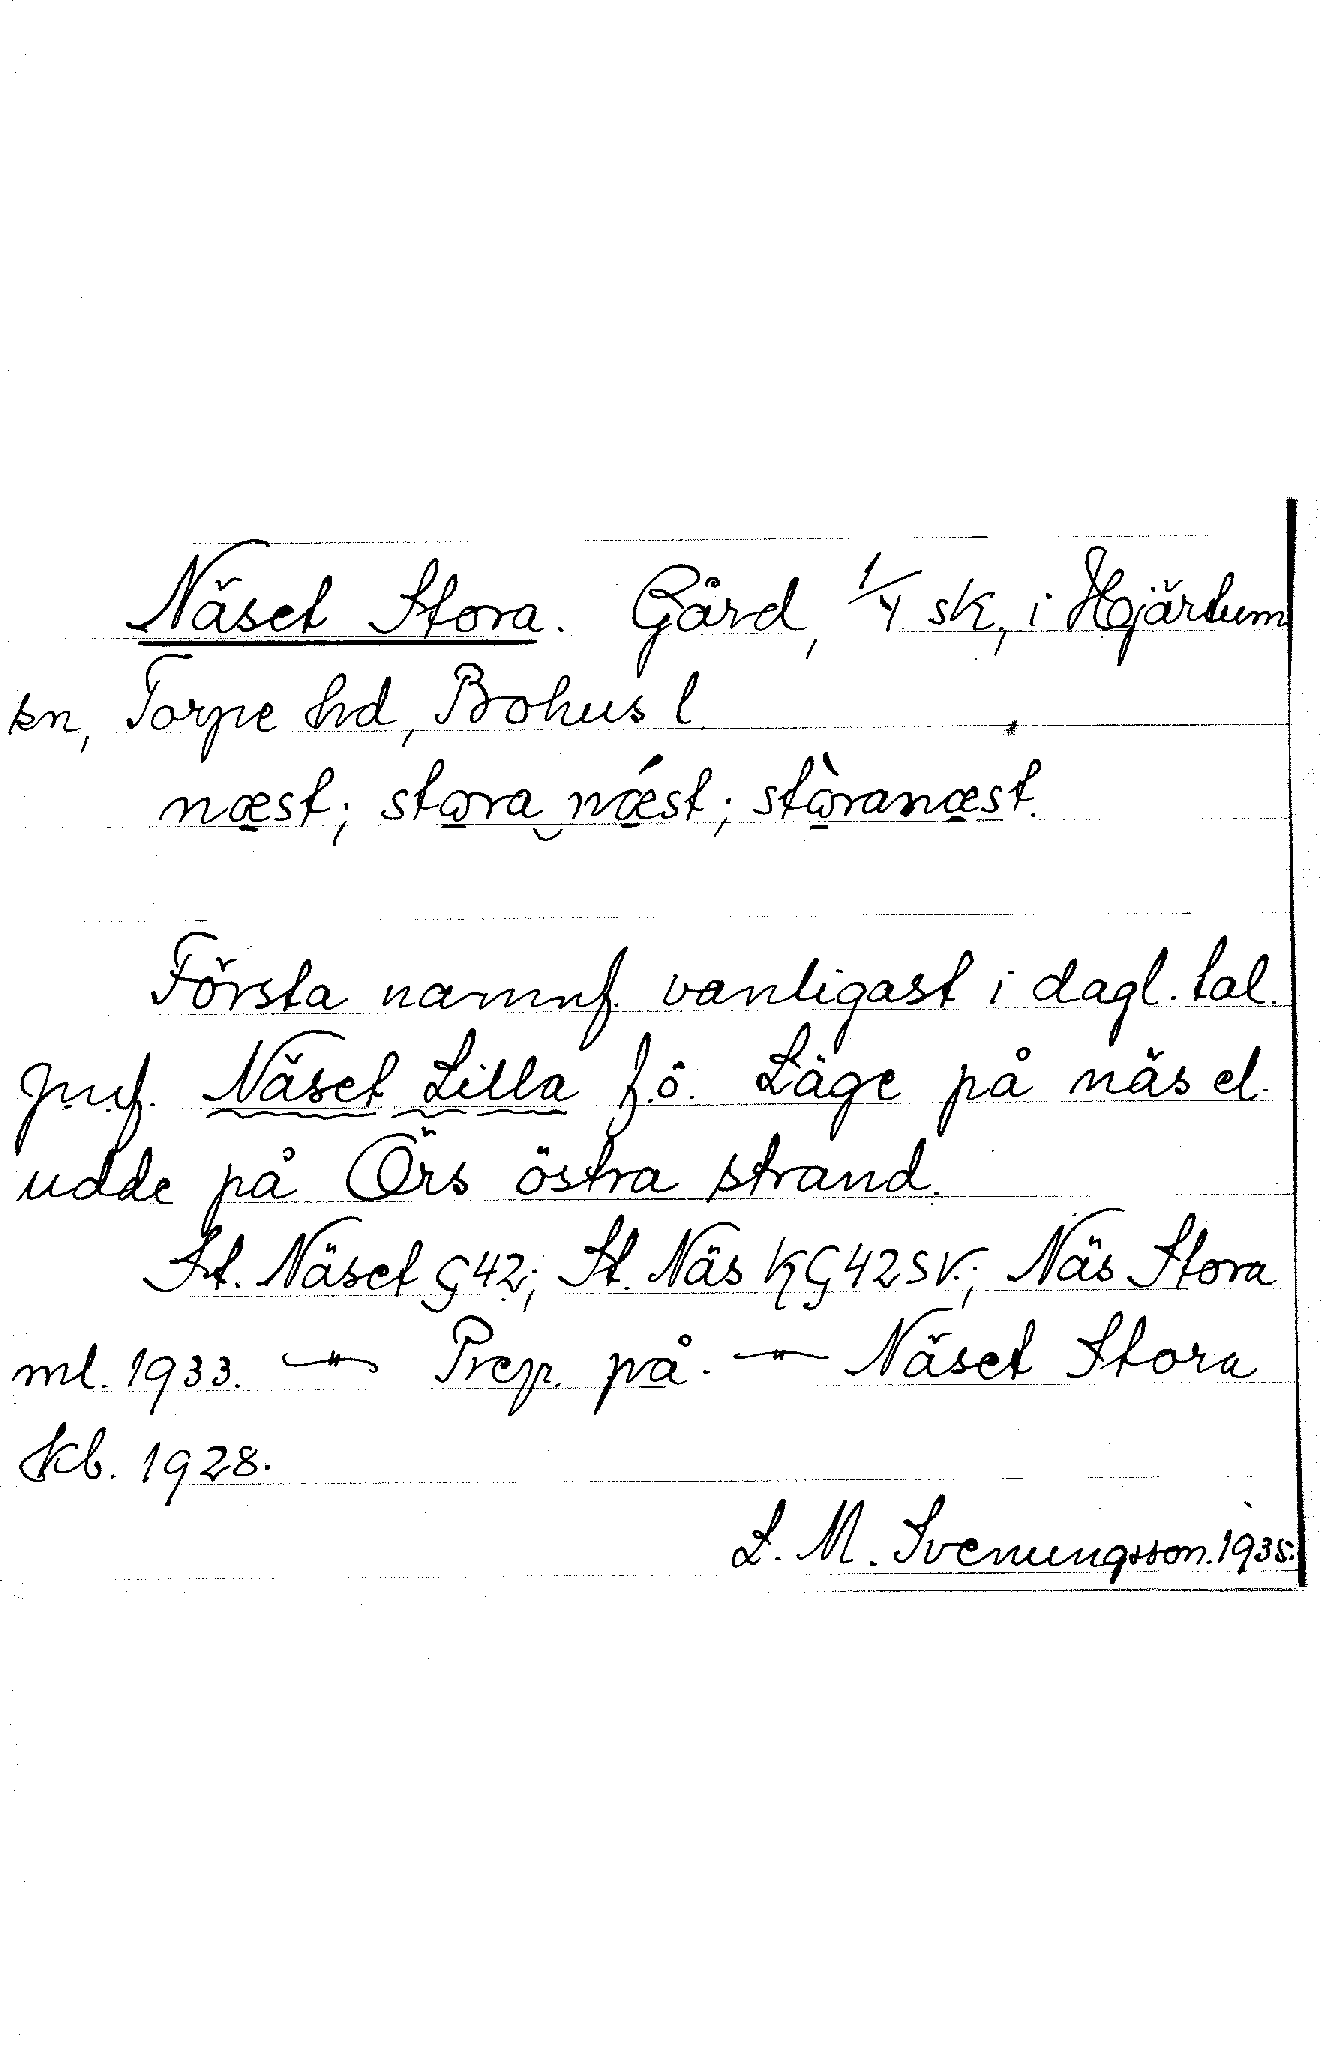 Näset Stora. Gård, 1/4 sk, i Hjärtum
kn, Torpe hd, Bohus l.
næst; stora næ´st; stòranæst.
Första namnf. vanligast i dagl. tal.
Jmf. Näset Lilla f.ö. Läge på näs el.
udde på Örs östra strand.
St. Näset G42; St. Näs KG42SV.; Näs Stora
ml. 1933. — Prep. på. — Näset Stora
kb. 1928.
L. M. Svenungsson. 1935.